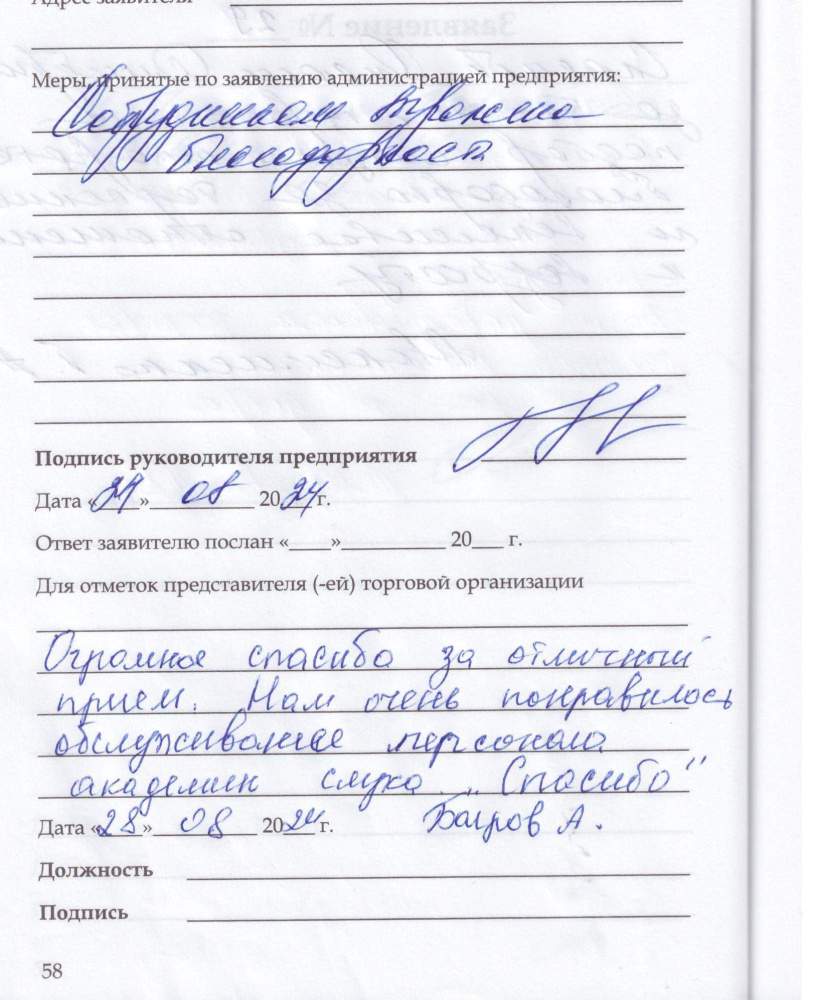 Адрес заявителя
Меры, принятые по заявлению администрацией предприятия:
Сотрудникам выражена
благодарность
Подпись руководителя предприятия
Дата «29» 08 2024 г.
Ответ заявителю послан «    »            20    г.
Для отметок представителя (-ей) торговой организации
Огромное спасибо за отличный
прием. Нам очень понравилось
обслуживание персонала
академии слуха. „Спасибо"
Дата «28» 08 2024 г. Багров А.
Должность
Подпись
58